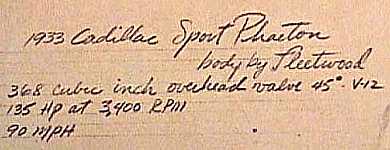 1933 Cadillac Sport Phaeton
body by Fleetwood
368 cubic inch overhead valve 45° V-12
135 HP at 3,400 RPM
90 MPH